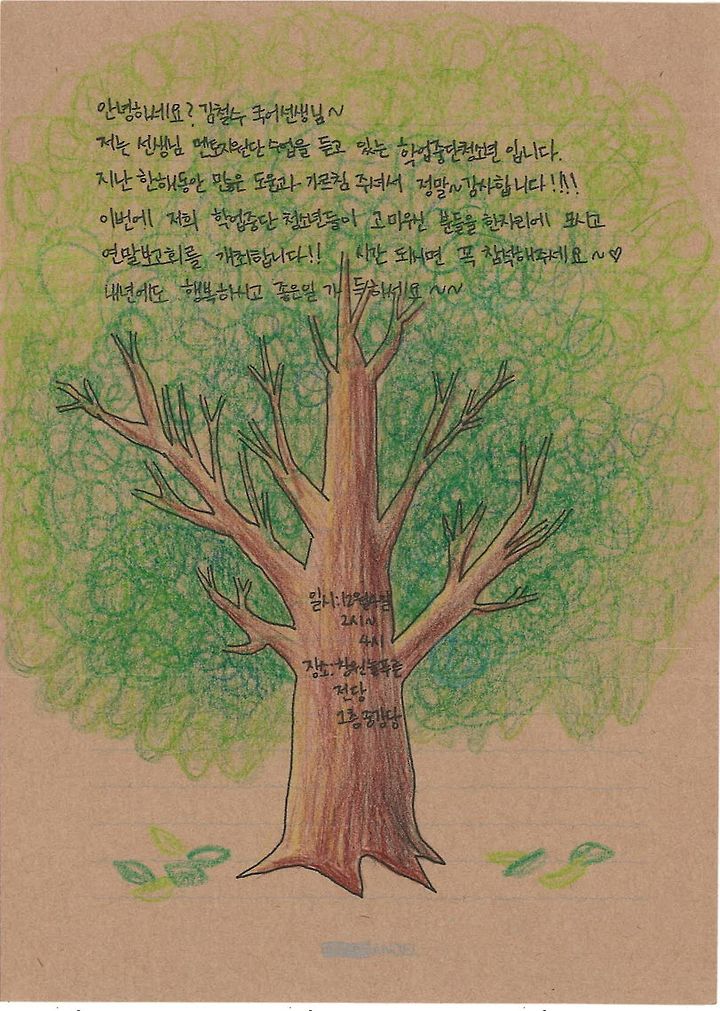 안녕하세요? 김철수 국어선생님~
저는 선생님 멘토지원단 수업을 듣고 있는 학업중단청소년 입니다.
지난 한해동안 많은 도움과 가르침 주셔서 정말~감사합니다!!!!
이번에 저희 학업중단 청소년들이 고마우신 분들을 한자리에 모시고
연말보고회를 개최합니다!! 시간 되시면 꼭 참석해주세요~♡
내년에도 행복하시고 좋은일 가득하세요~~
일시:12월
2시~
4시
장소:창원늘푸른
전당
1층 공감당